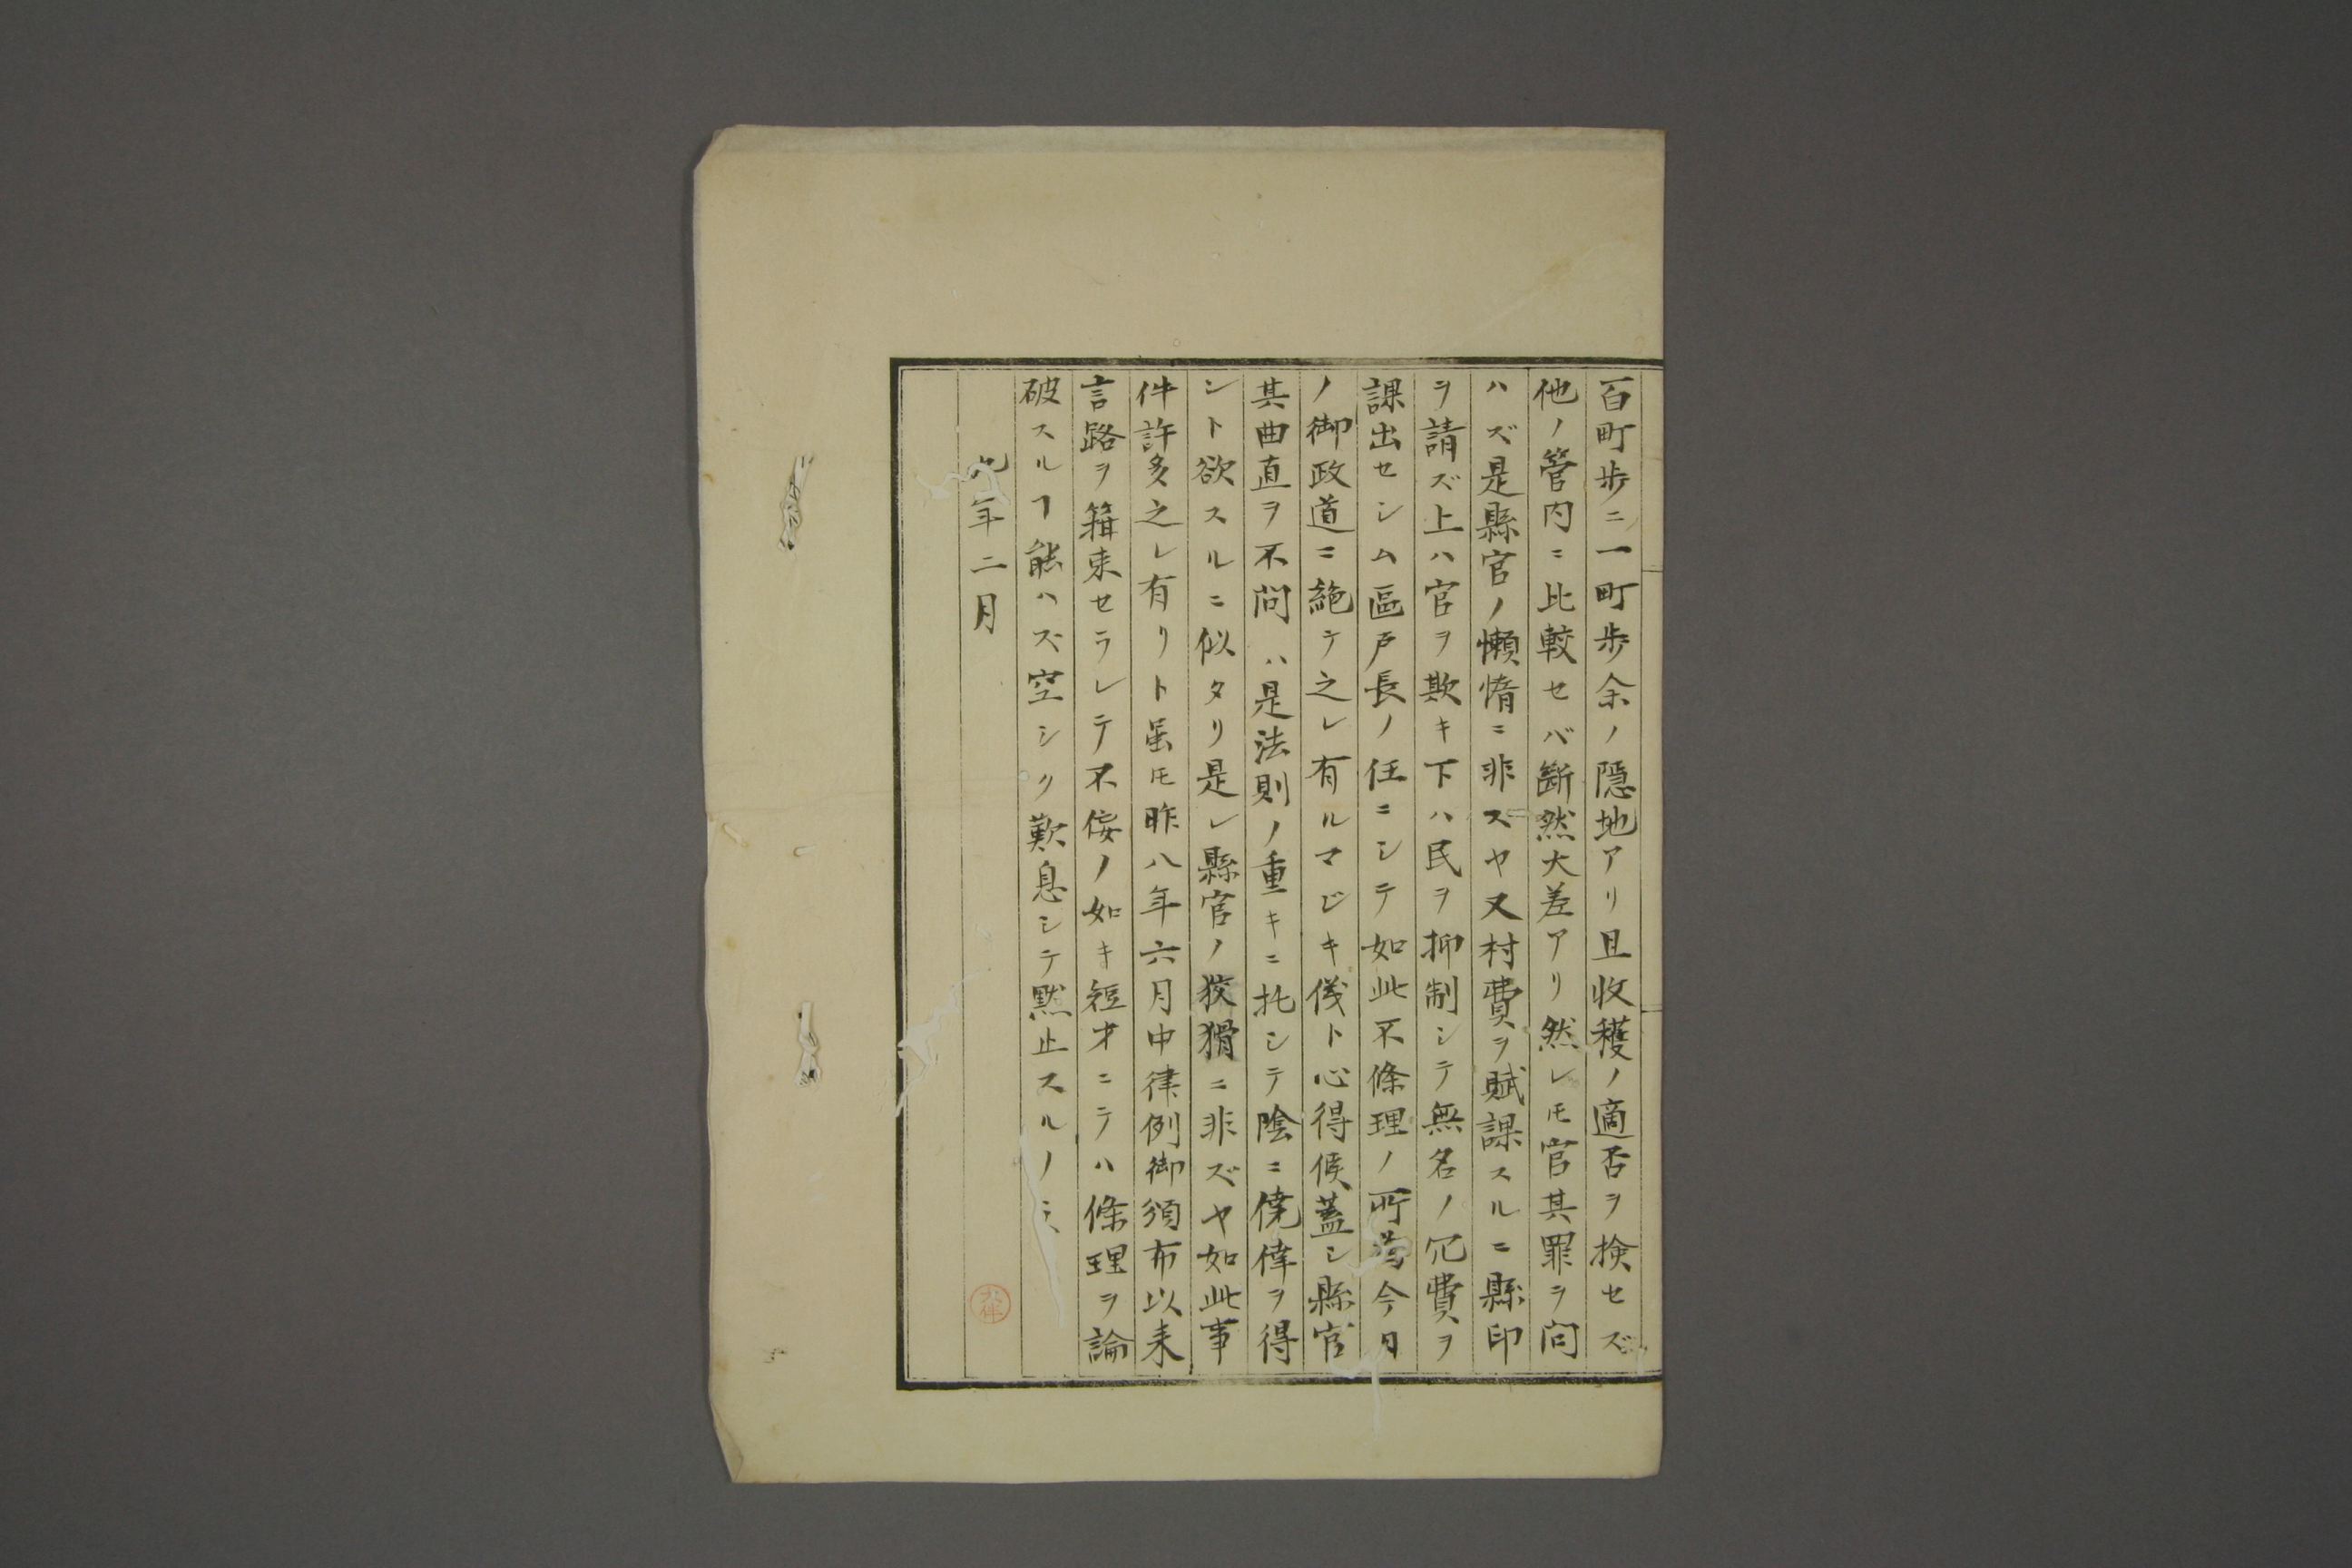 百町歩ニ一町歩余ノ隠地アリ且收穫ノ適否ヲ検セズ
他ノ管内ニ比較セバ断然大差アリ然レ𪜈官其罪ヲ問
ハズ是縣官ノ懶惰ニ非スヤ又村費ヲ賦課スルニ縣印
ヲ請ズ上ハ官ヲ欺キ下ハ民ヲ抑制シテ無名ノ冗費ヲ
課出セシム區戸長ノ任ニシテ如此不條理ノ所為今日
ノ御政道ニ絶テ之レ有ルマジキ儀ト心得候蓋シ縣官
其曲直ヲ不問ハ是法則ノ重キニ托シテ陰ニ僥倖ヲ得
ント欲スルニ似タリ是レ縣官ノ狡猾ニ非ズヤ如此事
件許多之レ有リト虽𪜈昨八年六月中律例御頒布以来
言路ヲ箝束セラレテ不佞ノ如キ短才ニテハ條理ヲ論
破スルヿ能ハズ空シク歎息シテ黙止スルノミ
九年二月